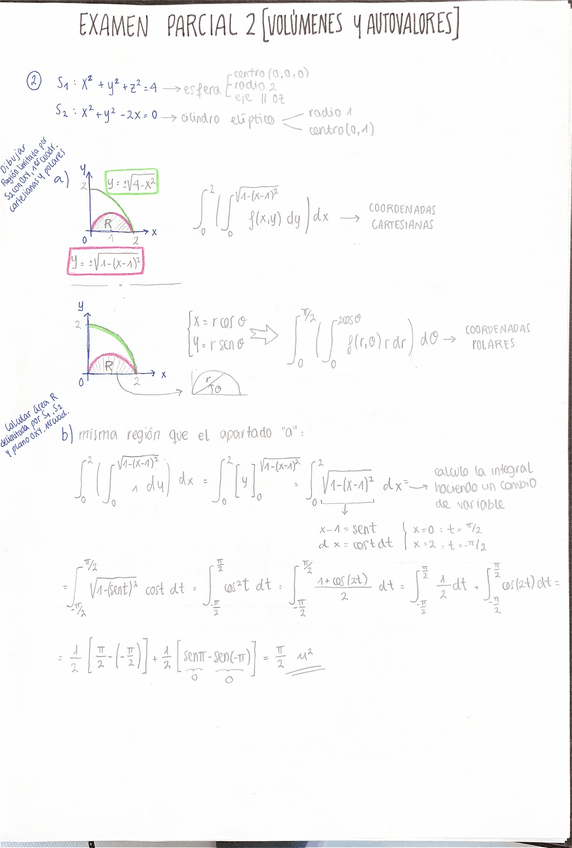 EXAMEN PARCIAL 2 [VOLÚMENES Y AUTOVALORES]
② S₁ : x² + y² + z² = 4 → esfera centro (0,0,0)
radio 2
eje || OZ
S₂ : x² + y² - 2x = 0 → cilindro elíptico radio 1
centro (0,1)
Dibujar
Región limitada por
S₂ con OXY, 1er cuadr.
cartesianas y polares
a) y 2 y = ±√(4-x²)
R
0 1 2 x
y = ±√(1-(x-1)²)
∫₀² (∫₀^√(1-(x-1)²) f(x,y) dy) dx → COORDENADAS
CARTESIANAS
y
2
R
0 2 x
r θ
{ x = r cos θ
y = r sen θ
⇒ ∫₀^π/2 (∫₀^2cosθ f(r,θ) r dr) dθ → COORDENADAS
POLARES
Calcular área R
delimitada por S₁, S₂
y plano OXY, 1er cuad.
b) misma región que el apartado "a":
∫₀² (∫₀^√(1-(x-1)²) 1 dy) dx = ∫₀² [y]₀^√(1-(x-1)²) = ∫₀² √(1-(x-1)²) dx = → calculo la integral
haciendo un cambio
de variable
x-1 = sent { x=0 : t = π/2
dx = cost dt x=2, t = -π/2
= ∫_-π/2^π/2 √(1-(sent)²) cost dt = ∫_-π/2^π/2 cos²t dt = ∫_-π/2^π/2 (1+cos(2t))/2 dt = ∫_-π/2^π/2 1/2 dt + ∫_-π/2^π/2 cos(2t) dt =
= 1/2 [π/2 - (-π/2)] + 1/2 [senπ - sen(-π)] = π/2 u²
0 0